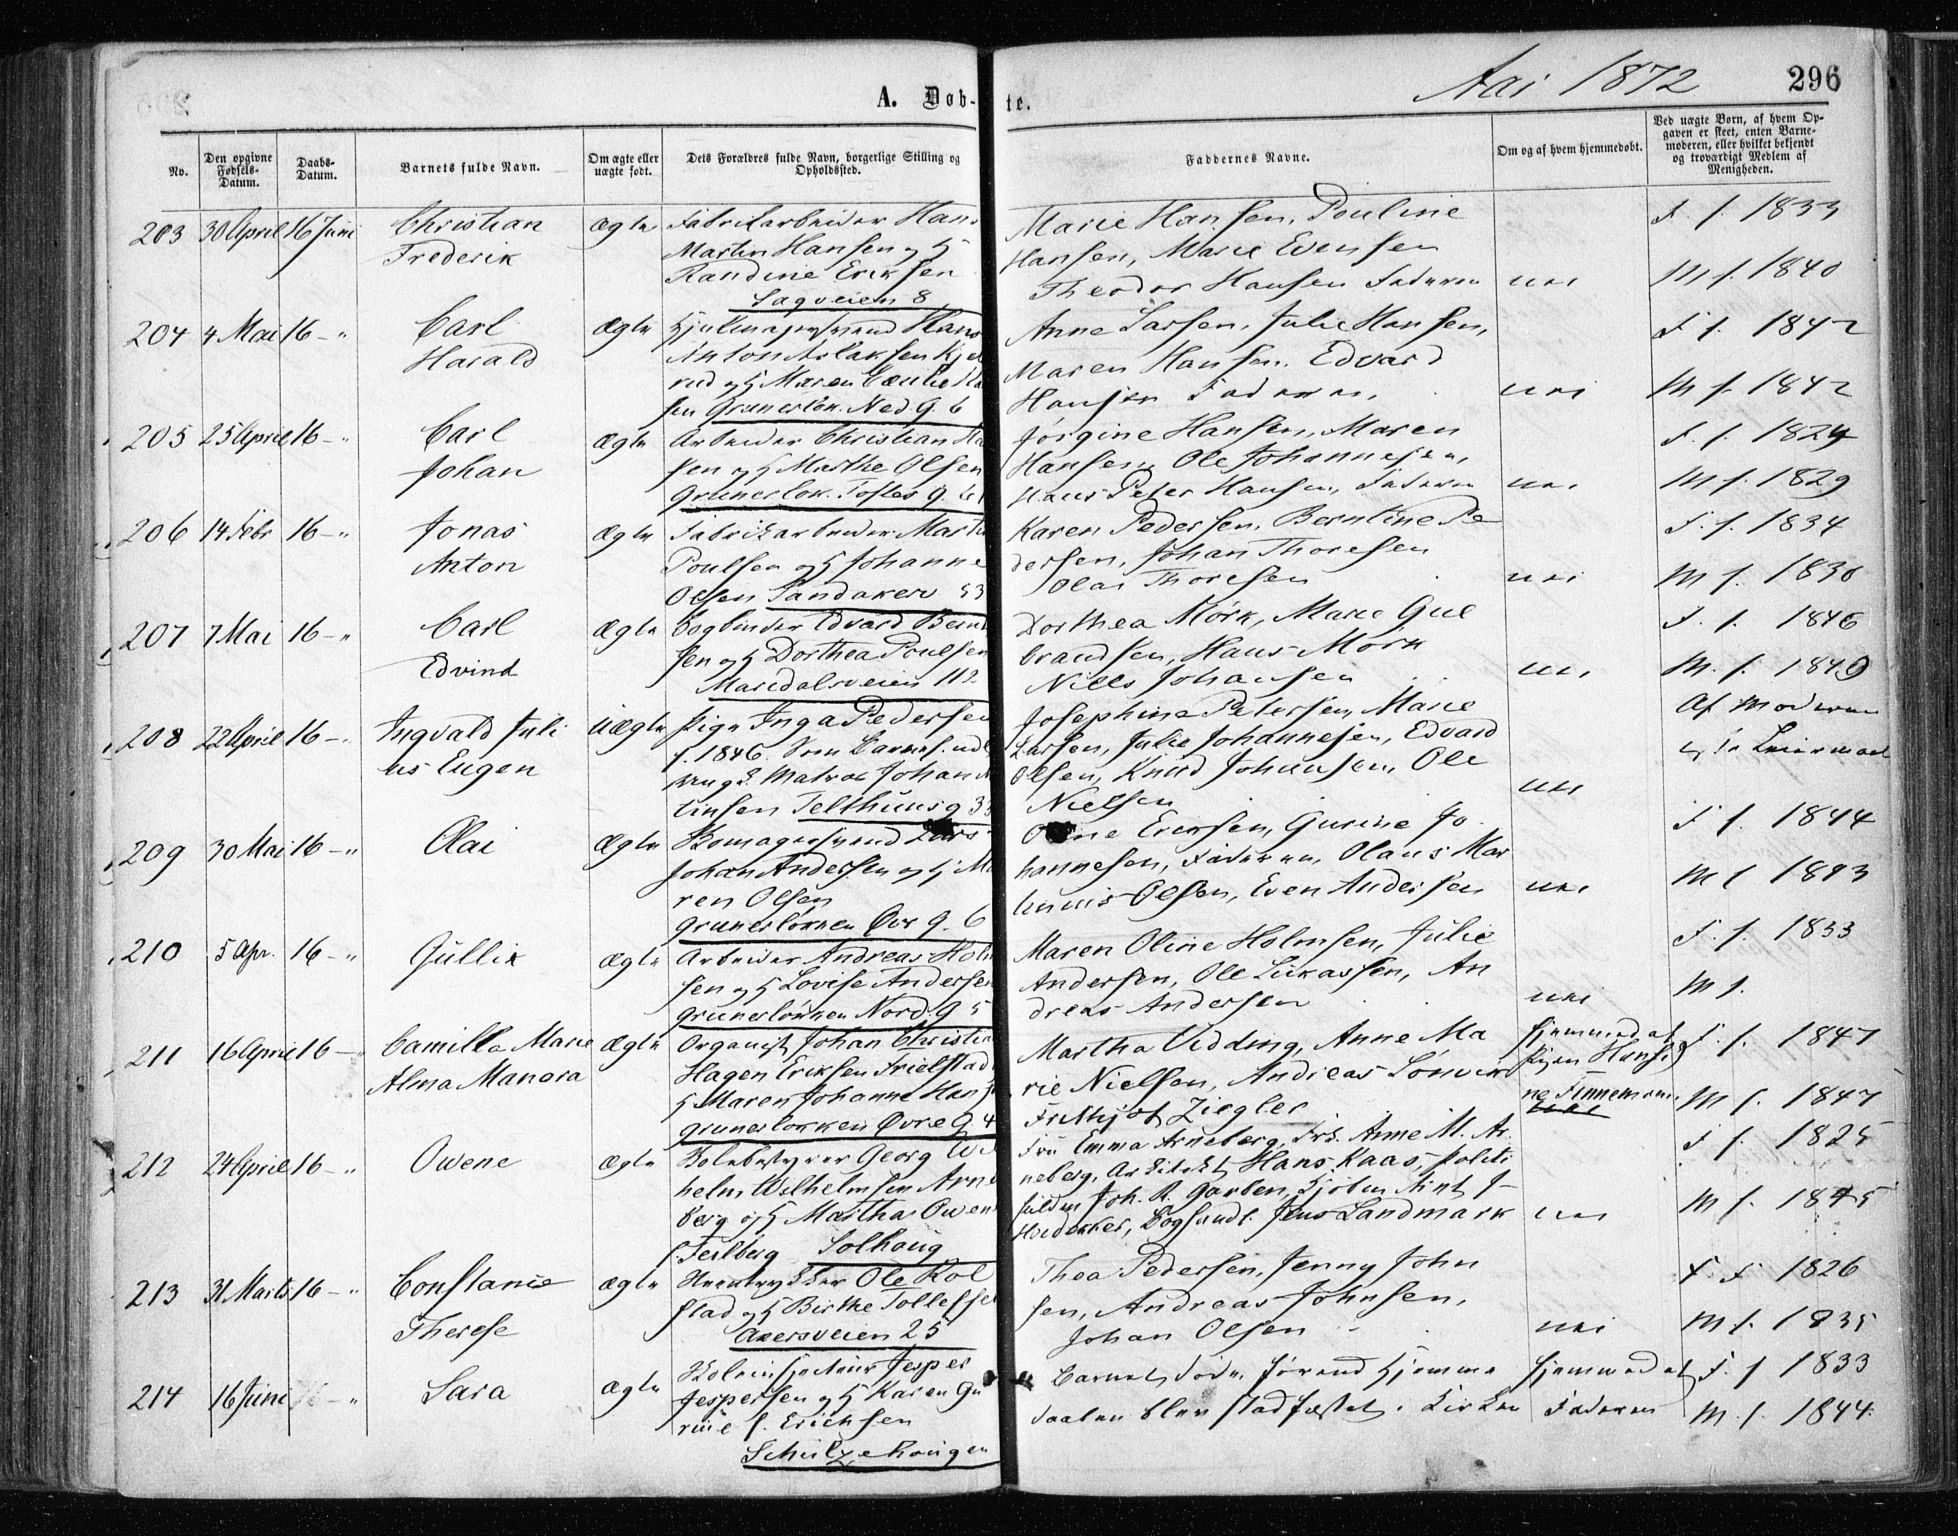 296
Mai 1872
A. Døb-te.
No.
Den opgivne Fødsels-Datum.
Daabs-Datum.
Barnets fulde Navn.
Om ægte eller uægte født.
Dets Forældres fulde Navn, borgerlige Stilling og Opholdssted.
Faddernes Navne.
Om og af hvem hjemmedøbt.
Ved uægte Børn, af hvem Opgaven er skeet, enten Barnemoderen, eller hvilket bekjendt og troværdigt Medlem af Menigheden.
203 30 April 16 Juni Christian Ægte Fabrikarbeider Hans Marie Hansen, Pouline F. f. 1833
Frederik Martin Hansen og H Hansen, Marie Evensen
Randine Eriksen Theodor Hansen Faderen nei M f. 1840
Sagveien 8
204 4 Mai 16 - " Carl Ægte Hjulmagersvend Hans Anne Larsen, Julie Hansen, F f. 1842
Harald Anton Aslaksen Kjel Maren Hansen, Edvard
rud og H Maren Cæcilie Han Hansen Faderen, nei M f. 1842
sen Grunerløk. Ned G. 6
205 25 April 16 - " Carl Ægte Arbeider Christian Han Jørgine Hansen, Maren F. f. 1824
Johan sen og H Marthe Olsen Hansen, Ole Johannesen,
Grunerløk. Toftes G. Hans Peter Hansen, Faderen nei M f. 1829
206 14 Febr 16 - " Jonas Ægte Fabrikarbeider Martin Karen Pedersen, Berntine Pe F. f. 1834
Anton Poulsen og H Johanne dersen, Johan Thoresen
Olsen Sandaker 53 Olai Thoresen nei M f. 1830
207 7 Mai 16 - " Carl Ægte Bogbinder Edvard Bernt Dorthea Mørk, Marie Gul F. f. 1846
Edvind sen og H Dorthea Poulsen brandsen, Hans Mørk
Maridalsveien 112 Niels Johansen nei M. f. 1849
208 22 April 16 - " Ingvald Juli Uægte Pige Inga Pedersen Josephine Petersen, Marie Af Moderen
us Eugen f. 1846. Larsen, Julie Johannesen, Edvard
Matros Johan Olsen, Knud Johansen, Ole
tinsen Telthusug 33 Nielsen nei
209 30 Mai 16 - " Olai Ægte Skomagersvend Lars Oline Ericksen, Gurine Jo F f. 1844
Johan Andersen og H Ma hannesen, Faderen, Olaus Mar
ren Olsen Olsen, Even Andersen nei M f 1843
Grunerløkken Øvr G. 6
210 5 Apr. 16 - " Gullik Ægte Arbeider Andreas Holm Maren Oline Holmsen, Julie F. f. 1833
sen og H Lovise Andersen Andersen, Ole Lukassen, An
Grunerløkken Nord. G 5 dreas Andersen nei M f.
211 16 April 16 - " Camilla Marie Ægte Organist Johan Christian Martha Vedding, Anne Ma hjemmedøbt F. f. 1847
Alma Manora Hagen Eriksen Frielstad rie Nielsen, Andreas
H Maren Johanne Hans Frithjof Ziegler M f. 1847
Grunerløkken Øvre G 4
212 24 April 16 - " Owene Ægte Bolebestyrer Georg Wil Fru Emma Arneberg, Frk. Anne M. Ar F f. 1825
helm Wilhelmsen Arne neberg, Arkitekt Hans Kaas, Politi
berg og H Martha Owen Joh. R. Garben, M f. 1845
f. Feilberg Solhaug Jens Landmark nei
213 31 Marts 16 - " Constanse Ægte Ole Rol Thea Pedersen, Jenny John F. f 1826
Therese stad og H Birthe Tollefsen sen, Andreas Johnsen,
Akersveien 25 Johan Olsen nei M f. 1835
214 16 Juni - " Sara Ægte Jesper Barnet døde, førend hjemme hjemmedøbt F. f 1833
Jespersen og H Karen Gu daaben blev stadfæstet i Kirken Faderen M. f. 1844.
rine f. Erichsen
Schultzehaugen